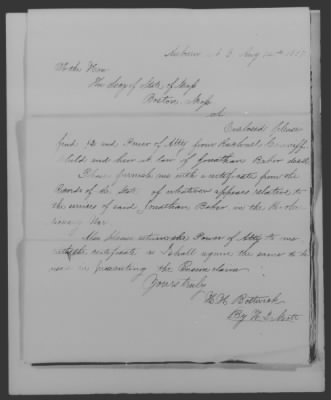 Auburn N. Y. Aug 14th
To the Hon
The Secy of State of Mass
Boston Mass
Enclosed Please
find 12 and Power of Atty from
Child and heir at law of Jonathan Baker decd
Please furnish me with a certificate from the
Records of the State of whatever appears relative to
the services of said Jonathan Baker in the Revolu
tionary War
Also please return the Power of Atty to me
with the certificate as I shall require the same to be
used in presenting the Pension claim
Yours truly
H. H. Bostwick
By